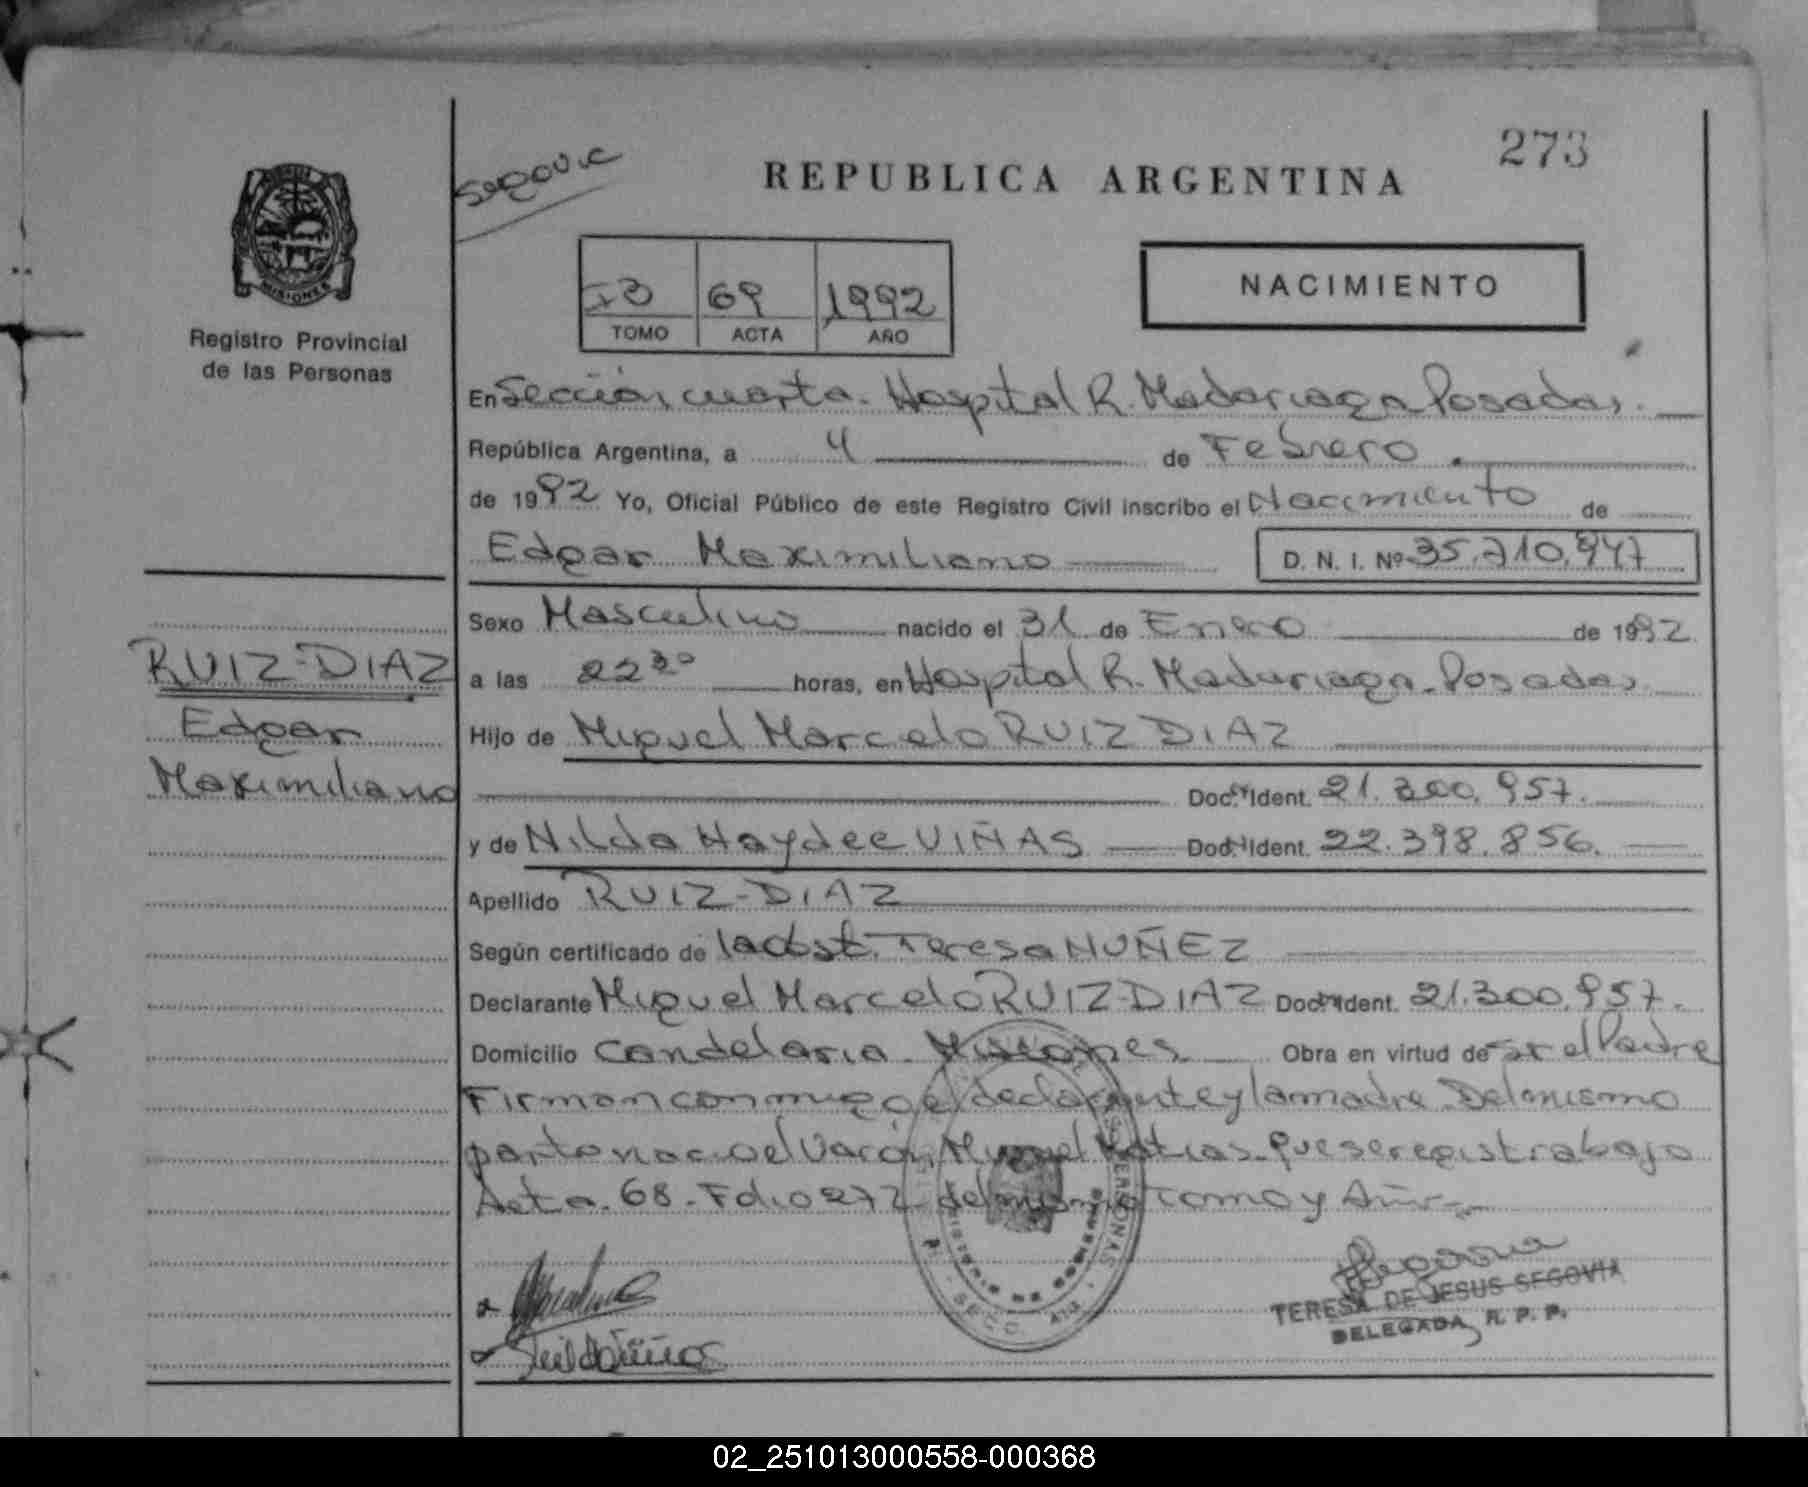 273
Segovia
REPUBLICA ARGENTINA
I3 69 1992
TOMO ACTA AÑO
NACIMIENTO
MISIONES
Registro Provincial
de las Personas
En Sección cuarta. Hospital R. Madariaga Posadas.
República Argentina, a 4 de Febrero.
de 1992 Yo, Oficial Público de este Registro Civil inscribo el Nacimiento de
Edgar Maximiliano D. N. I. Nº 35.710.947
Sexo Masculino nacido el 31 de Enero de 1992
RUIZ-DIAZ
Edgar
Maximiliano
a las 22 30 horas, en Hospital R. Madariaga. Posadas
Hijo de Miguel Marcelo RUIZ DIAZ
Doc. Ident. 21.300.957.
y de Nilda Haydee VIÑAS Doc. Ident. 22.398.856.
Apellido RUIZ-DIAZ
Según certificado de la Obst. Teresa NUÑEZ
Declarante Miguel Marcelo RUIZ-DIAZ Doc. Ident. 21.300.957.
Domicilio Candelaria. Misiones Obra en virtud de Sr el Padre
Firman conmigo el declarante y la madre. Del mismo
parto nacio el Varón Miguel Matias. que se registra bajo
Acta. 68. Folio 272 del mismo tomo y Año.
Segovia
TERESA DE JESUS SEGOVIA
DELEGADA R. P. P.
02_251013000558-000368